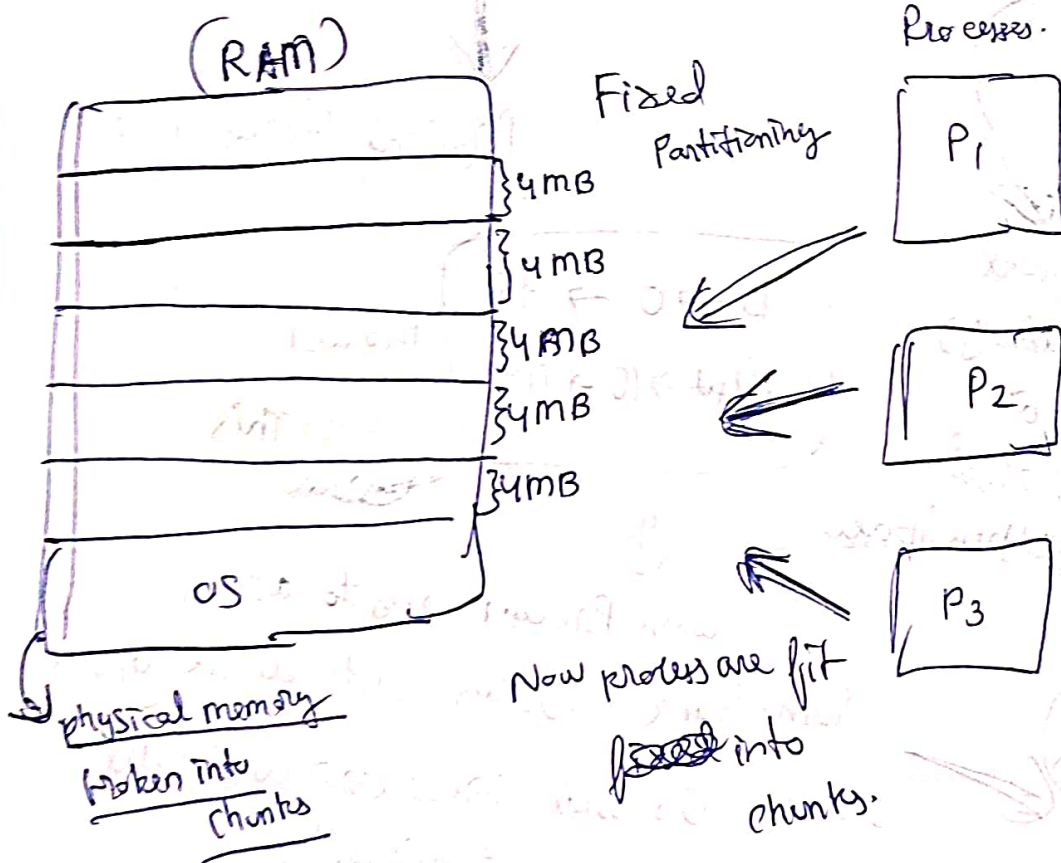 (RAM)
Processes.
Fixed
Partitioning
P1
4MB
4MB
4MB
4MB
4MB
P2
OS
P3
physical memory
broken into
chunks
Now process are fit
into
chunks.